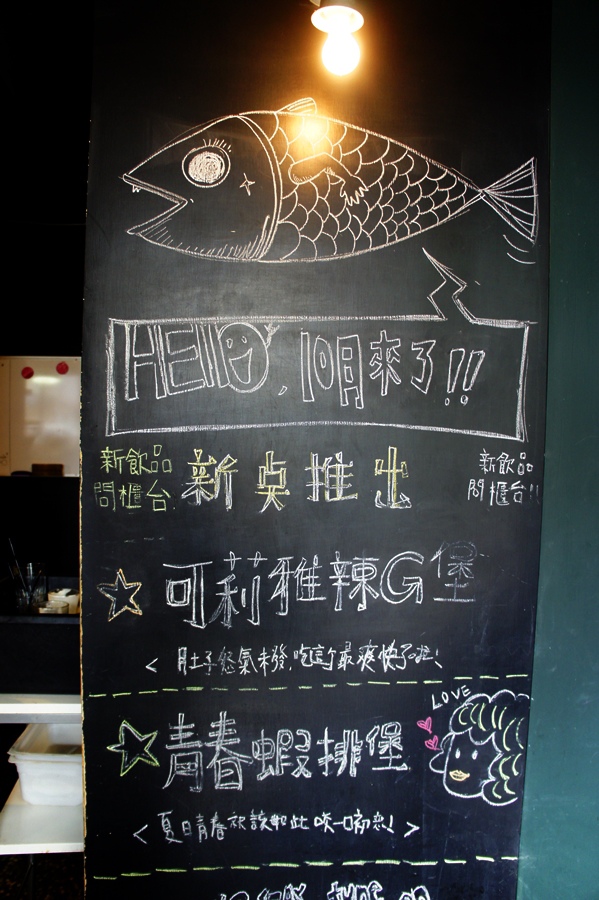 HELLO, 10月來了!!
新飲品
問櫃台
新桌推出
新飲品
問櫃台!!
可莉雅辣G堡
< 肚子怒氣未發,吃這個最爽快了啦!
LOVE
青春蝦排堡
< 夏日青春就該如此 啖一口初戀! >